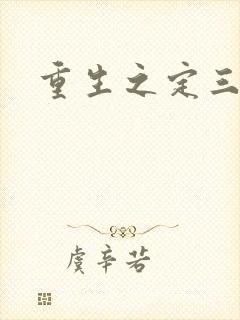 重生之定三
虞辛若